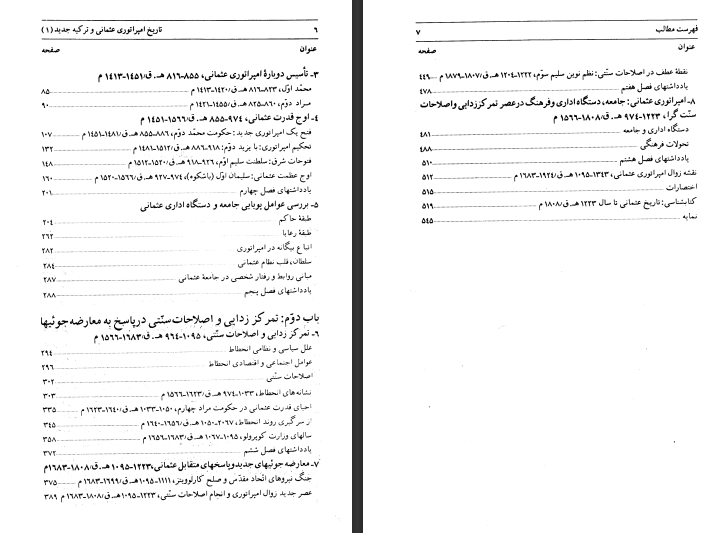 ۶ تاریخ امپراتوری عثمانی و ترکیه جدید (۱)
عنوان صفحه
۳ـ تأسیس دوبارهٔ امپراتوری عثمانی، ۸۵۵ـ۸۱۶ هـ.ق/۱۴۵۱ـ۱۴۱۳ م
محمّد اوّل، ۸۲۳ـ۸۱۶ هـ.ق/۱۴۲۰ـ۱۴۱۳ م ۸۵
مراد دوّم، ۸۶۰ـ۸۲۵ هـ.ق/۱۴۵۵ـ۱۴۲۱ م ۹۰
۴ـ اوج قدرت عثمانی، ۹۷۴ـ۸۵۵ هـ.ق/۱۵۶۶ـ۱۴۵۱ م
فتح یک امپراتوری جدید: حکومت محمّد دوّم، ۸۸۶ـ۸۵۵ هـ.ق/۱۴۸۱ـ۱۴۵۱ م ۱۰۷
تحکیم امپراتوری: با یزید دوّم: ۹۱۸ـ۸۸۶ هـ.ق/۱۵۱۲ـ۱۴۸۱ م ۱۳۲
فتوحات شرق: سلطنت سلیم اوّل، ۹۲۶ـ۹۱۸ هـ.ق/۱۵۲۰ـ۱۵۱۲ م ۱۴۸
اوج عظمت عثمانی: سلیمان اوّل (باشکوه)، ۹۷۴ـ۹۲۷ هـ.ق/۱۵۶۶ـ۱۵۲۰ م ۱۶۰
یادداشتهای فصل چهارم ۲۰۱
۵ـ بررسی عوامل پویایی جامعه و دستگاه اداری عثمانی
طبقهٔ حاکم ۲۰۴
طبقهٔ رعایا ۲۶۲
اتباع بیگانه در امپراتوری ۲۸۲
سلطان، قلب نظام عثمانی ۲۸۴
مبانی روابط و رفتار شخصی در جامعهٔ عثمانی ۲۸۷
یادداشتهای فصل پنجم ۲۸۸
باب دوّم: تمرکز زدایی و اصلاحات سنّتی در پاسخ به معارضه جوئیها
۶ـ تمرکز زدایی و اصلاحات سنّتی، ۱۰۹۵ـ۹۶۴ هـ.ق/۱۶۸۳ـ۱۵۶۶ م
علل سیاسی و نظامی انحطاط ۲۹۴
عوامل اجتماعی و اقتصادی انحطاط ۲۹۶
اصلاحات سنّتی ۳۰۲
نشانه‌های انحطاط، ۱۰۳۳ـ۹۷۴ هـ.ق/۱۶۲۳ـ۱۵۶۶ م ۳۰۳
احیای قدرت عثمانی در حکومت مراد چهارم، ۱۰۵۰ـ۱۰۳۳ هـ.ق/۱۶۴۰ـ۱۶۲۳ م ۳۳۵
از سرگیری روند انحطاط، ۲۰۶۷ـ۱۰۵۰ هـ.ق/۱۶۵۶ـ۱۶۴۰ م ۳۴۵
سالهای وزارت کوپرولو، ۱۰۹۵ـ۱۰۶۷ هـ.ق/۱۶۸۳ـ۱۶۵۶ م ۳۵۸
یادداشتهای فصل ششم ۳۷۲
۷ـ معارضه جوئیهای جدید و پاسخهای متقابل عثمانی، ۱۲۲۳ـ۱۰۹۵ هـ.ق/۱۸۰۸ـ۱۶۸۳ م
جنگ نیروهای اتّحاد مقدّس و صلح کارلوویتز، ۱۱۱۱ـ۱۰۹۵ هـ.ق/۱۶۹۹ـ۱۶۸۳ م ۳۷۵
عصر جدید زوال امپراتوری و انجام اصلاحات سنّتی، ۱۲۲۳ـ۱۰۹۵ هـ.ق/۱۸۰۸ـ۱۶۸۳ م ۳۸۹
فهرست مطالب ۷
عنوان صفحه
نقطهٔ عطف در اصلاحات سنّتی: نظم نوین سلیم سوّم، ۱۲۲۲ـ۱۲۰۴ هـ.ق/۱۸۰۷ـ۱۸۷۹ م ۴۴۹
یادداشتهای فصل هفتم ۴۷۸
۸ـ امپراتوری عثمانی: جامعه، دستگاه اداری و فرهنگ در عصر تمرکز زدایی و اصلاحات
سنّت گرا، ۱۲۲۳ـ۹۷۴ هـ.ق/۱۸۰۸ـ۱۵۶۶ م
دستگاه اداری و جامعه ۴۸۱
تحولات فرهنگی ۴۸۸
یادداشتهای فصل هشتم ۵۱۰
نقشه زوال امپراتوری عثمانی، ۱۳۴۳ـ۱۰۹۵ هـ.ق/۱۹۲۴ـ۱۶۸۳ م ۵۱۲
اختصارات ۵۱۵
کتابشناسی: تاریخ عثمانی تا سال ۱۲۲۳ هـ.ق/۱۸۰۸ م ۵۱۹
نمایه ۵۴۵